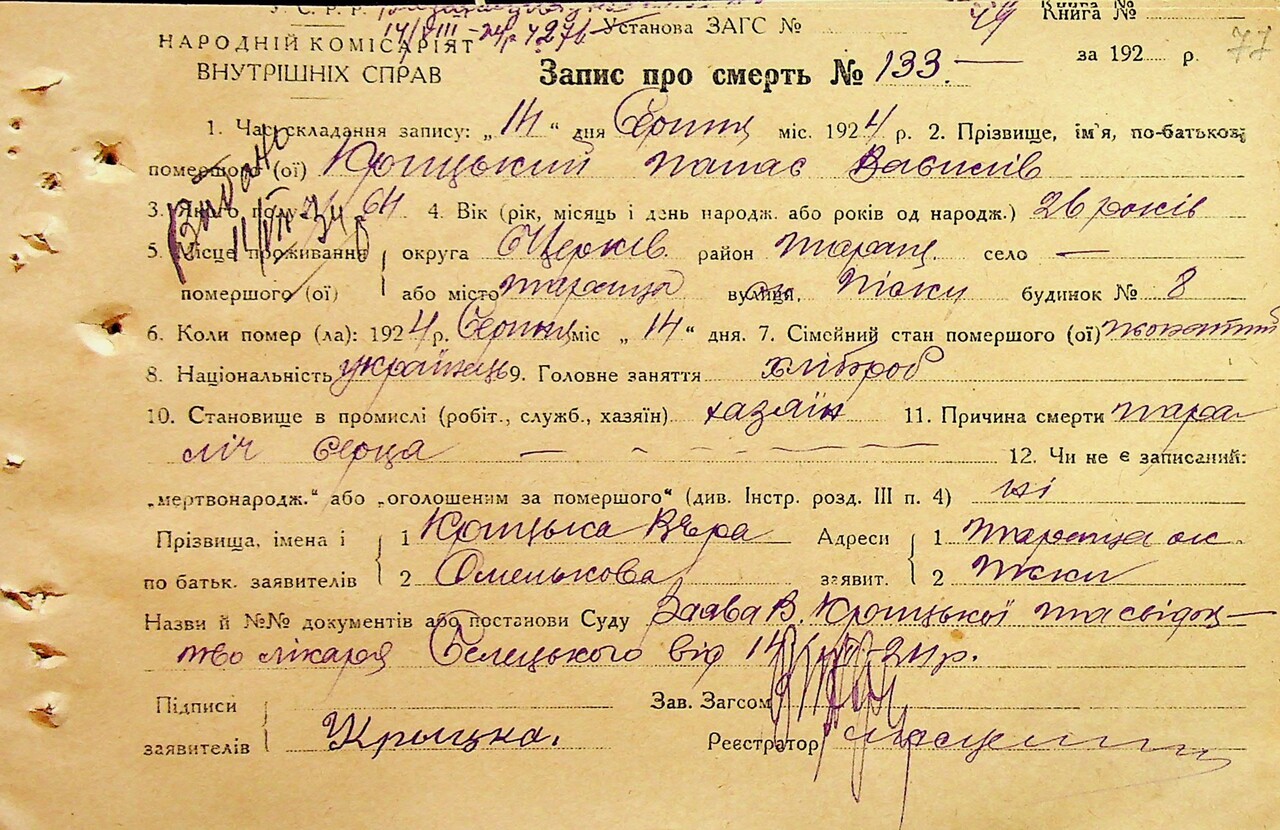 У.С.Р.Р.
14/VIII-24р Установа ЗАГС № 49 Книга №
НАРОДНІЙ КОМІСАРІЯТ
ВНУТРІШНІХ СПРАВ
Запис про смерть № 133. за 192 р. 77
1. Час складання запису: „14“ дня Серпня міс. 1924 р. 2. Прізвище, ім'я, по-батькові
помершого (ої) Крицький Панас Василів
Видано
3. 64 4. Вік (рік, місяць і день народж. або років од народж.) 26 років
5. Місце проживання округа БЦерків. район Таращ. село —
помершого (ої) або місто Таращa вулиця, Піски будинок № 8
6. Коли помер (ла): 1924 р. Серпня міс „14“ дня. 7. Сімейний стан помершого (ої) жонатий
8. Національність українець 9. Головне заняття хлібороб
10. Становище в промислі (робіт., служб., хазяїн) хазяїн 11. Причина смерти пара
ліч серца 12. Чи не є записаний:
„мертвонародж.“ або „оголошеним за помершого“ (див. Інстр. розд. III п. 4) ні
Прізвища, імена і 1 Крицька Вѣра Адреси 1 Тараща
по батьк. заявителів 2 Оменькова заявит. 2 Піски
Назви й №№ документів або постанови Суду Заява В. Крицької та свідоц-
тво лікаря Белецького від 14/VIII-24р.
Підписи Зав. Загсом
заявителів Крыцка. Реєстратор